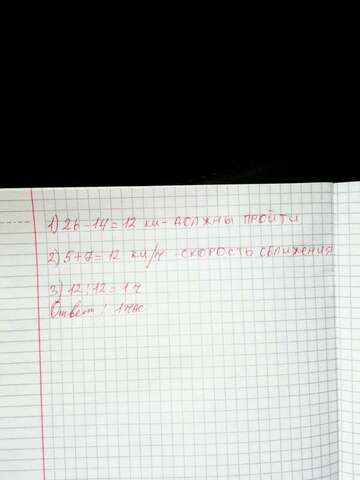 1) 26-14=12 км-должны пройти
2) 5+7=12 км/ч -скорость сближения
3) 12:12=1 ч
Ответ: 1 час